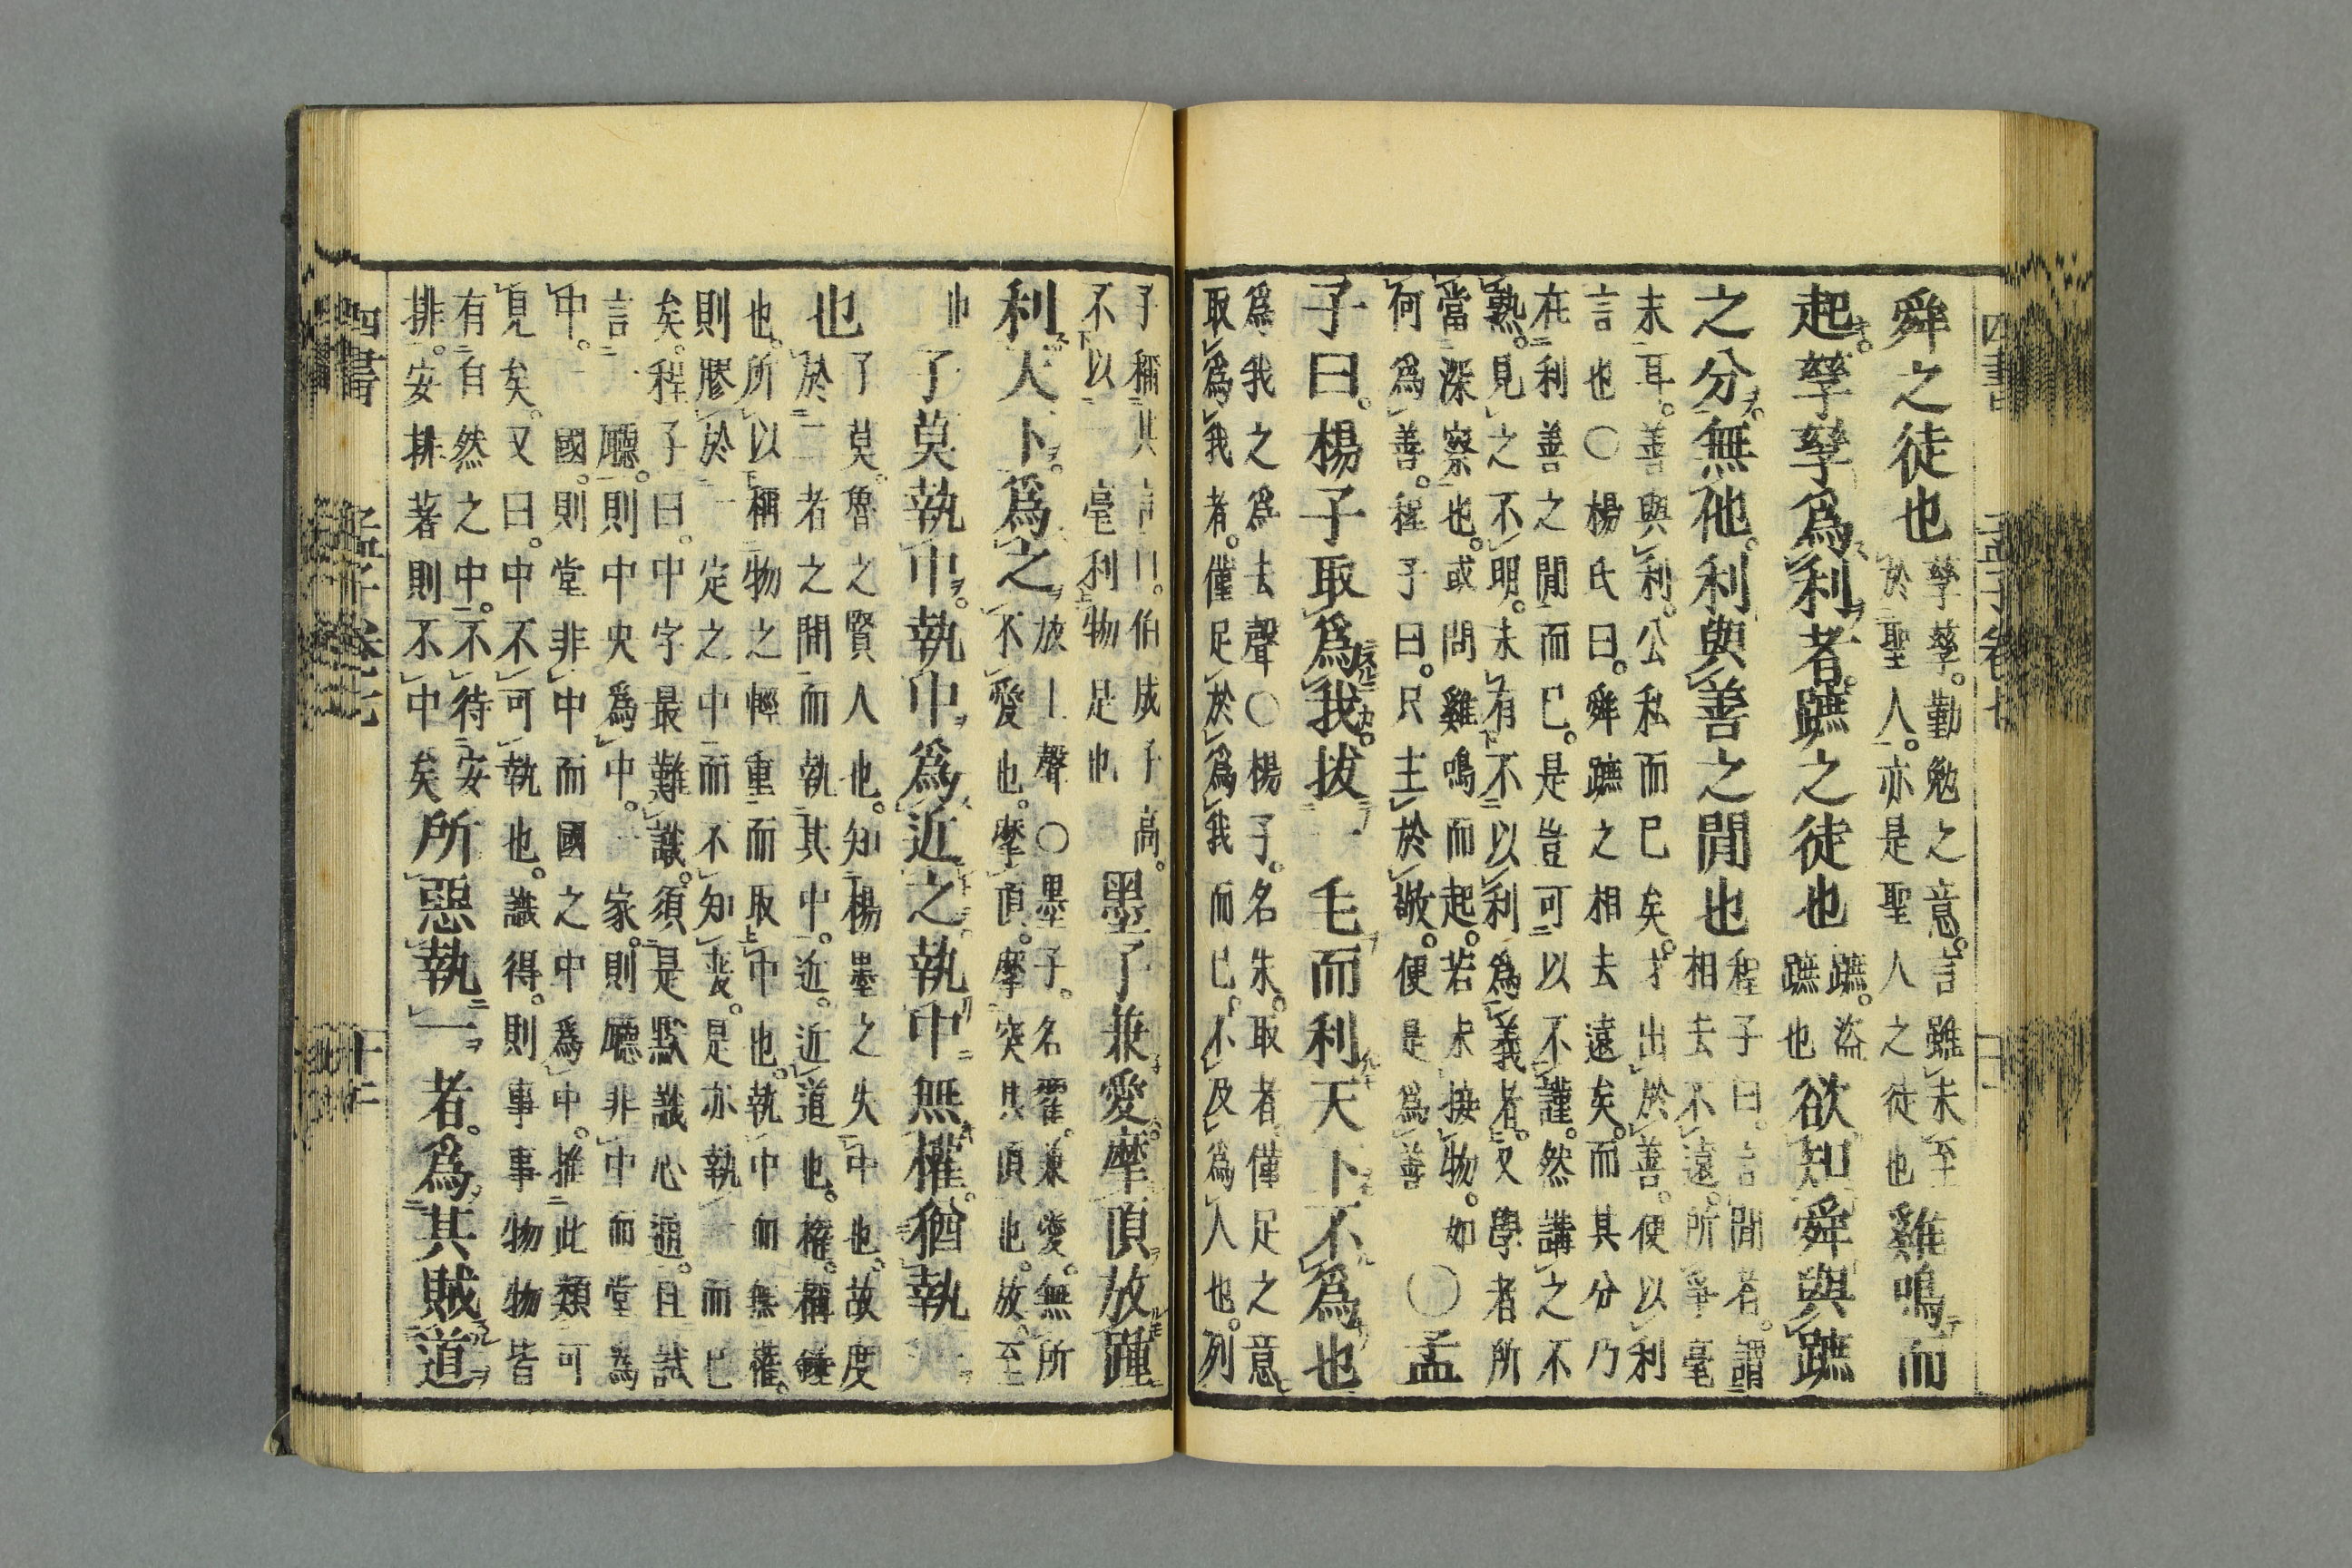 舜之徒也孳孳。勤勉之意。言雖未至
於聖人。亦是聖人之徒也雞鳴而
起。孳孳爲利者。蹠之徒也蹠。盜
蹠也欲知舜與蹠
之分。無他。利與善之閒也程子曰。言閒者。謂
相去不遠。所爭毫
末耳。善與利。公私而已矣。才出於善。便以利
言也〇楊氏曰。舜蹠之相去遠矣。而其分乃
在利善之閒而已。是豈可以不謹。然講之不
熟。見之不明。未有不以利爲義者。又學者所
當深察也。或問雞鳴而起。若未接物。如
何爲善。程子曰。只主於敬。便是爲善〇孟
子曰。楊子取爲我。拔一毛而利天下不爲也
爲我之爲去聲〇楊子。名朱。取者。僅足之意。
取爲我者。僅足於爲我而已。不及爲人也。列
子稱其言曰。伯成子高。
不以一毫利物是也墨子兼愛。摩頂放踵
利天下。爲之放上聲〇墨子。名翟。兼愛。無所
不愛也。摩頂。摩突其頂也。放。至
也子莫執中。執中爲近之。執中無權。猶執一
也子莫。魯之賢人也。知楊墨之失中也。故度
於二者之間而執其中。近。近道也。權。稱錘
也。所以稱物之輕重而取中也。執中而無權。
則膠於一定之中而不知變。是亦執一而已
矣。程子曰。中字最難識。須是默識心通。且試
言一廳。則中央爲中。一家。則廳非中而堂爲
中。一國。則堂非中而國之中爲中。推此類可
見矣。又曰。中不可執也。識得。則事事物物皆
有自然之中。不待安
排。安排著則不中矣所惡執一者。爲其賊道
四書
孟子卷七
四書
孟子卷七